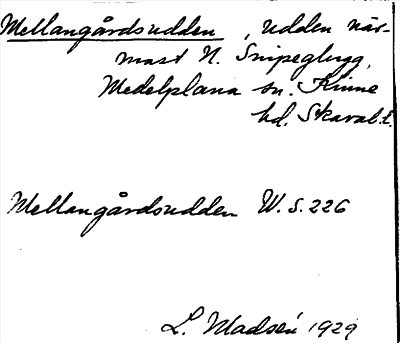 Mellangårdsudden, udden när-
mast N. Snipeglugg,
Medelplana sn. Kinne
hd. Skarab.l.
Mellangårdsudden W.S. 226
L. Madsén 1929